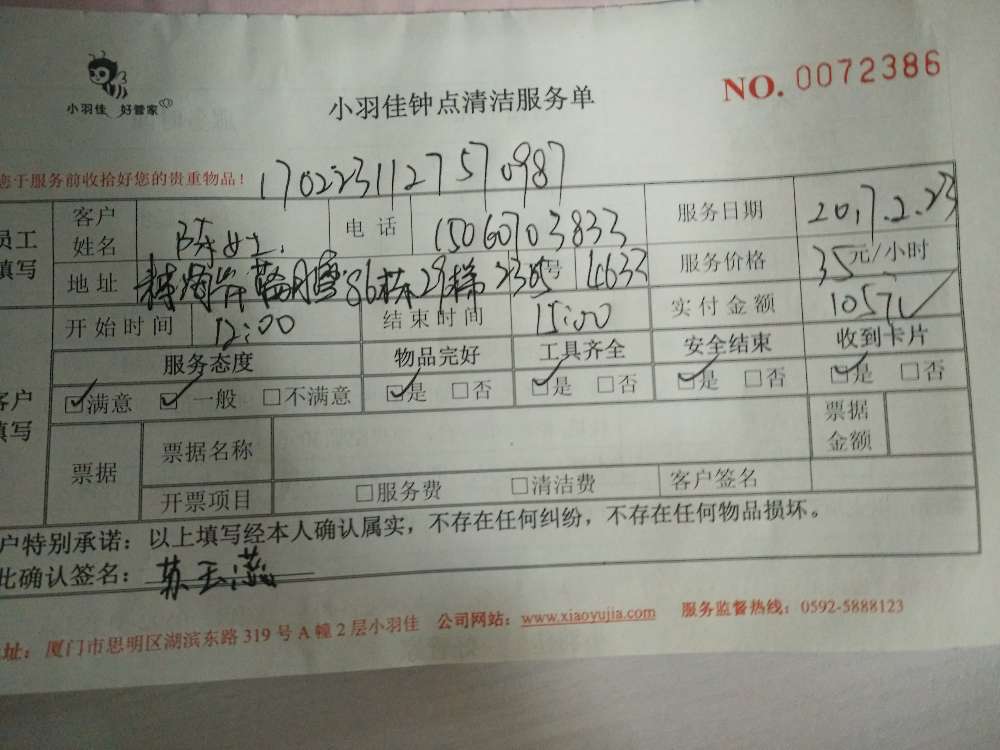 小羽佳 好管家
小羽佳钟点清洁服务单
NO. 0072386
您于服务前收拾好您的贵重物品!
17022311275 70987
员工填写 客户姓名 陈女士. 电话 15060703833 服务日期 2017.2.23
地址 86栋29梯2305号 14633 服务价格 35元/小时
开始时间 12:00 结束时间 15:00 实付金额 105元
服务态度 物品完好 工具齐全 安全结束 收到卡片
客户填写 ☑满意 ☑一般 □不满意 ☑是 □否 ☑是 □否 ☑是 □否 ☑是 □否
票据 票据名称 票据金额
开票项目 □服务费 □清洁费 客户签名
户特别承诺：以上填写经本人确认属实，不存在任何纠纷，不存在任何物品损坏。
此确认签名：苏玉
址：厦门市思明区湖滨东路319号A幢2层小羽佳 公司网站：www.xiaoyujia.com 服务监督热线：0592-5888123